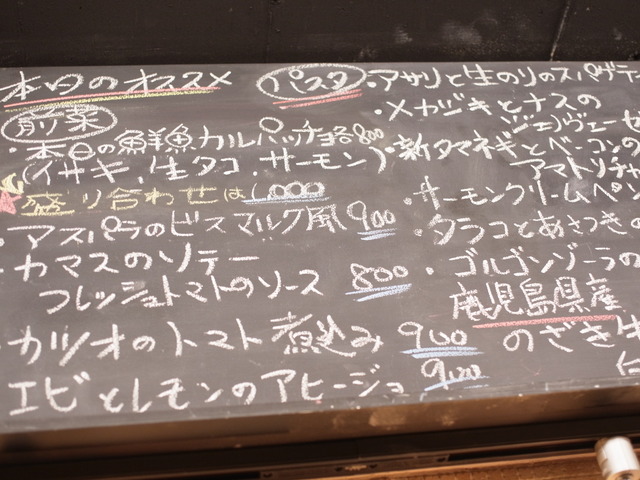 本日のオススメ
前菜
・本日の鮮魚カルパッチョ 各800
(イサキ,生タコ,サーモン)
盛り合わせは 1,000
・アスパラのビスマルク風 900
・カマスのソテー
フレッシュトマトのソース 800
・カツオのトマト煮込み 900
エビとレモンのアヒージョ 900
パスタ
・アサリと生のりのスパゲティ
・メカジキとナスの
ジェノヴェーゼ
・新タマネギとベーコンの
アマトリチャ
・サーモンクリームペン
・タラコとあさつきの
・ゴルゴンゾーラの
鹿児島県産
のざき牛